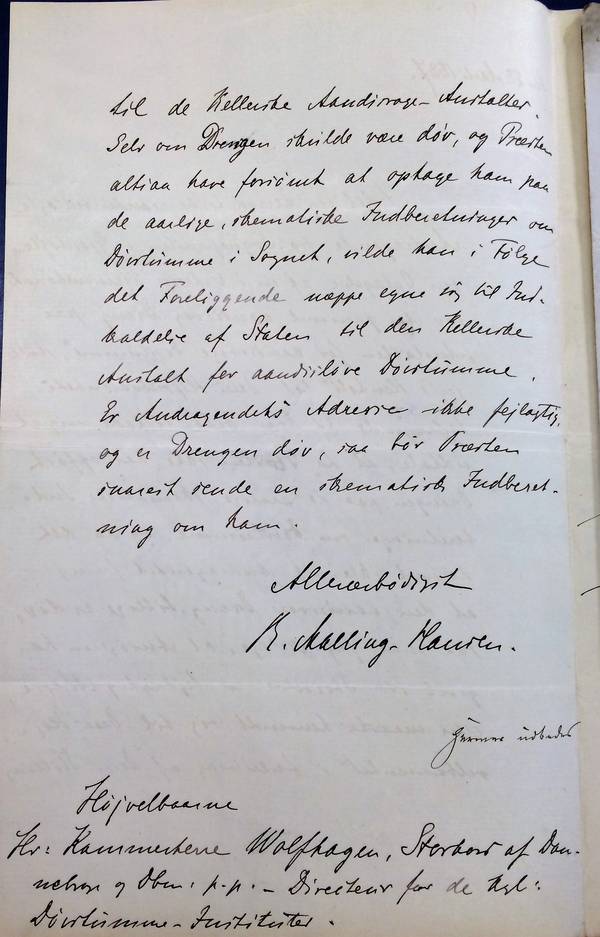 til de Kellerske Aandssvage-Anstalter.
Selv om Drengen skulde være døv, og Præsten
altsaa have forsømt at optage ham paa
de aarlige, skematiske Indberetninger om
Døvstumme i Sognet, vilde han i Følge
det Foreliggende næppe egne sig til Ind-
kaldelse af Staten til den Kellerske
Anstalt for aandssløve Døvstumme.
Er Andragendets Adresse ikke fejlagtig,
og er Drengen døv, saa bør Præsten
snarest sende en skematisk Indberet-
ning om ham.
Allerærbødigst
R. Malling-Hansen.
udbedes
Højvelbaarne
Hr: Kammerherre Wolfhagen, Storkors af Dan-
nebrog og Dbm: p.p. - Directeur for de kgl:
Døvstumme-Instituter.